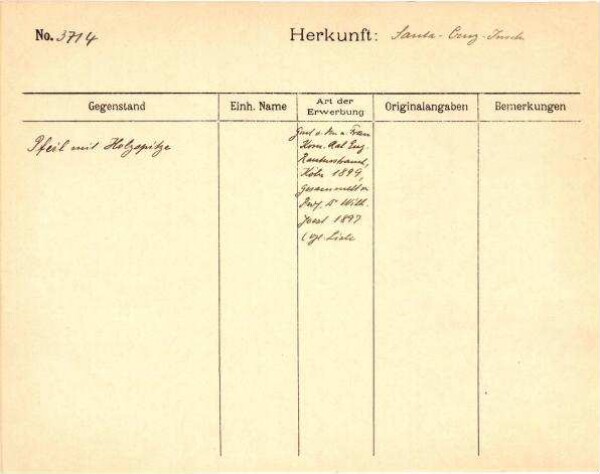 No. 3714
Herkunft: Santa-Cruz-Inseln
Gegenstand
Einh. Name
Art der Erwerbung
Originalangaben
Bemerkungen
Pfeil mit Holzspitze
u. Frau
Eug.
Rautenstrauch,
Köln 1899,
Gesammelt v.
Prof. Dr Wilh.
Joest 1897
Liste